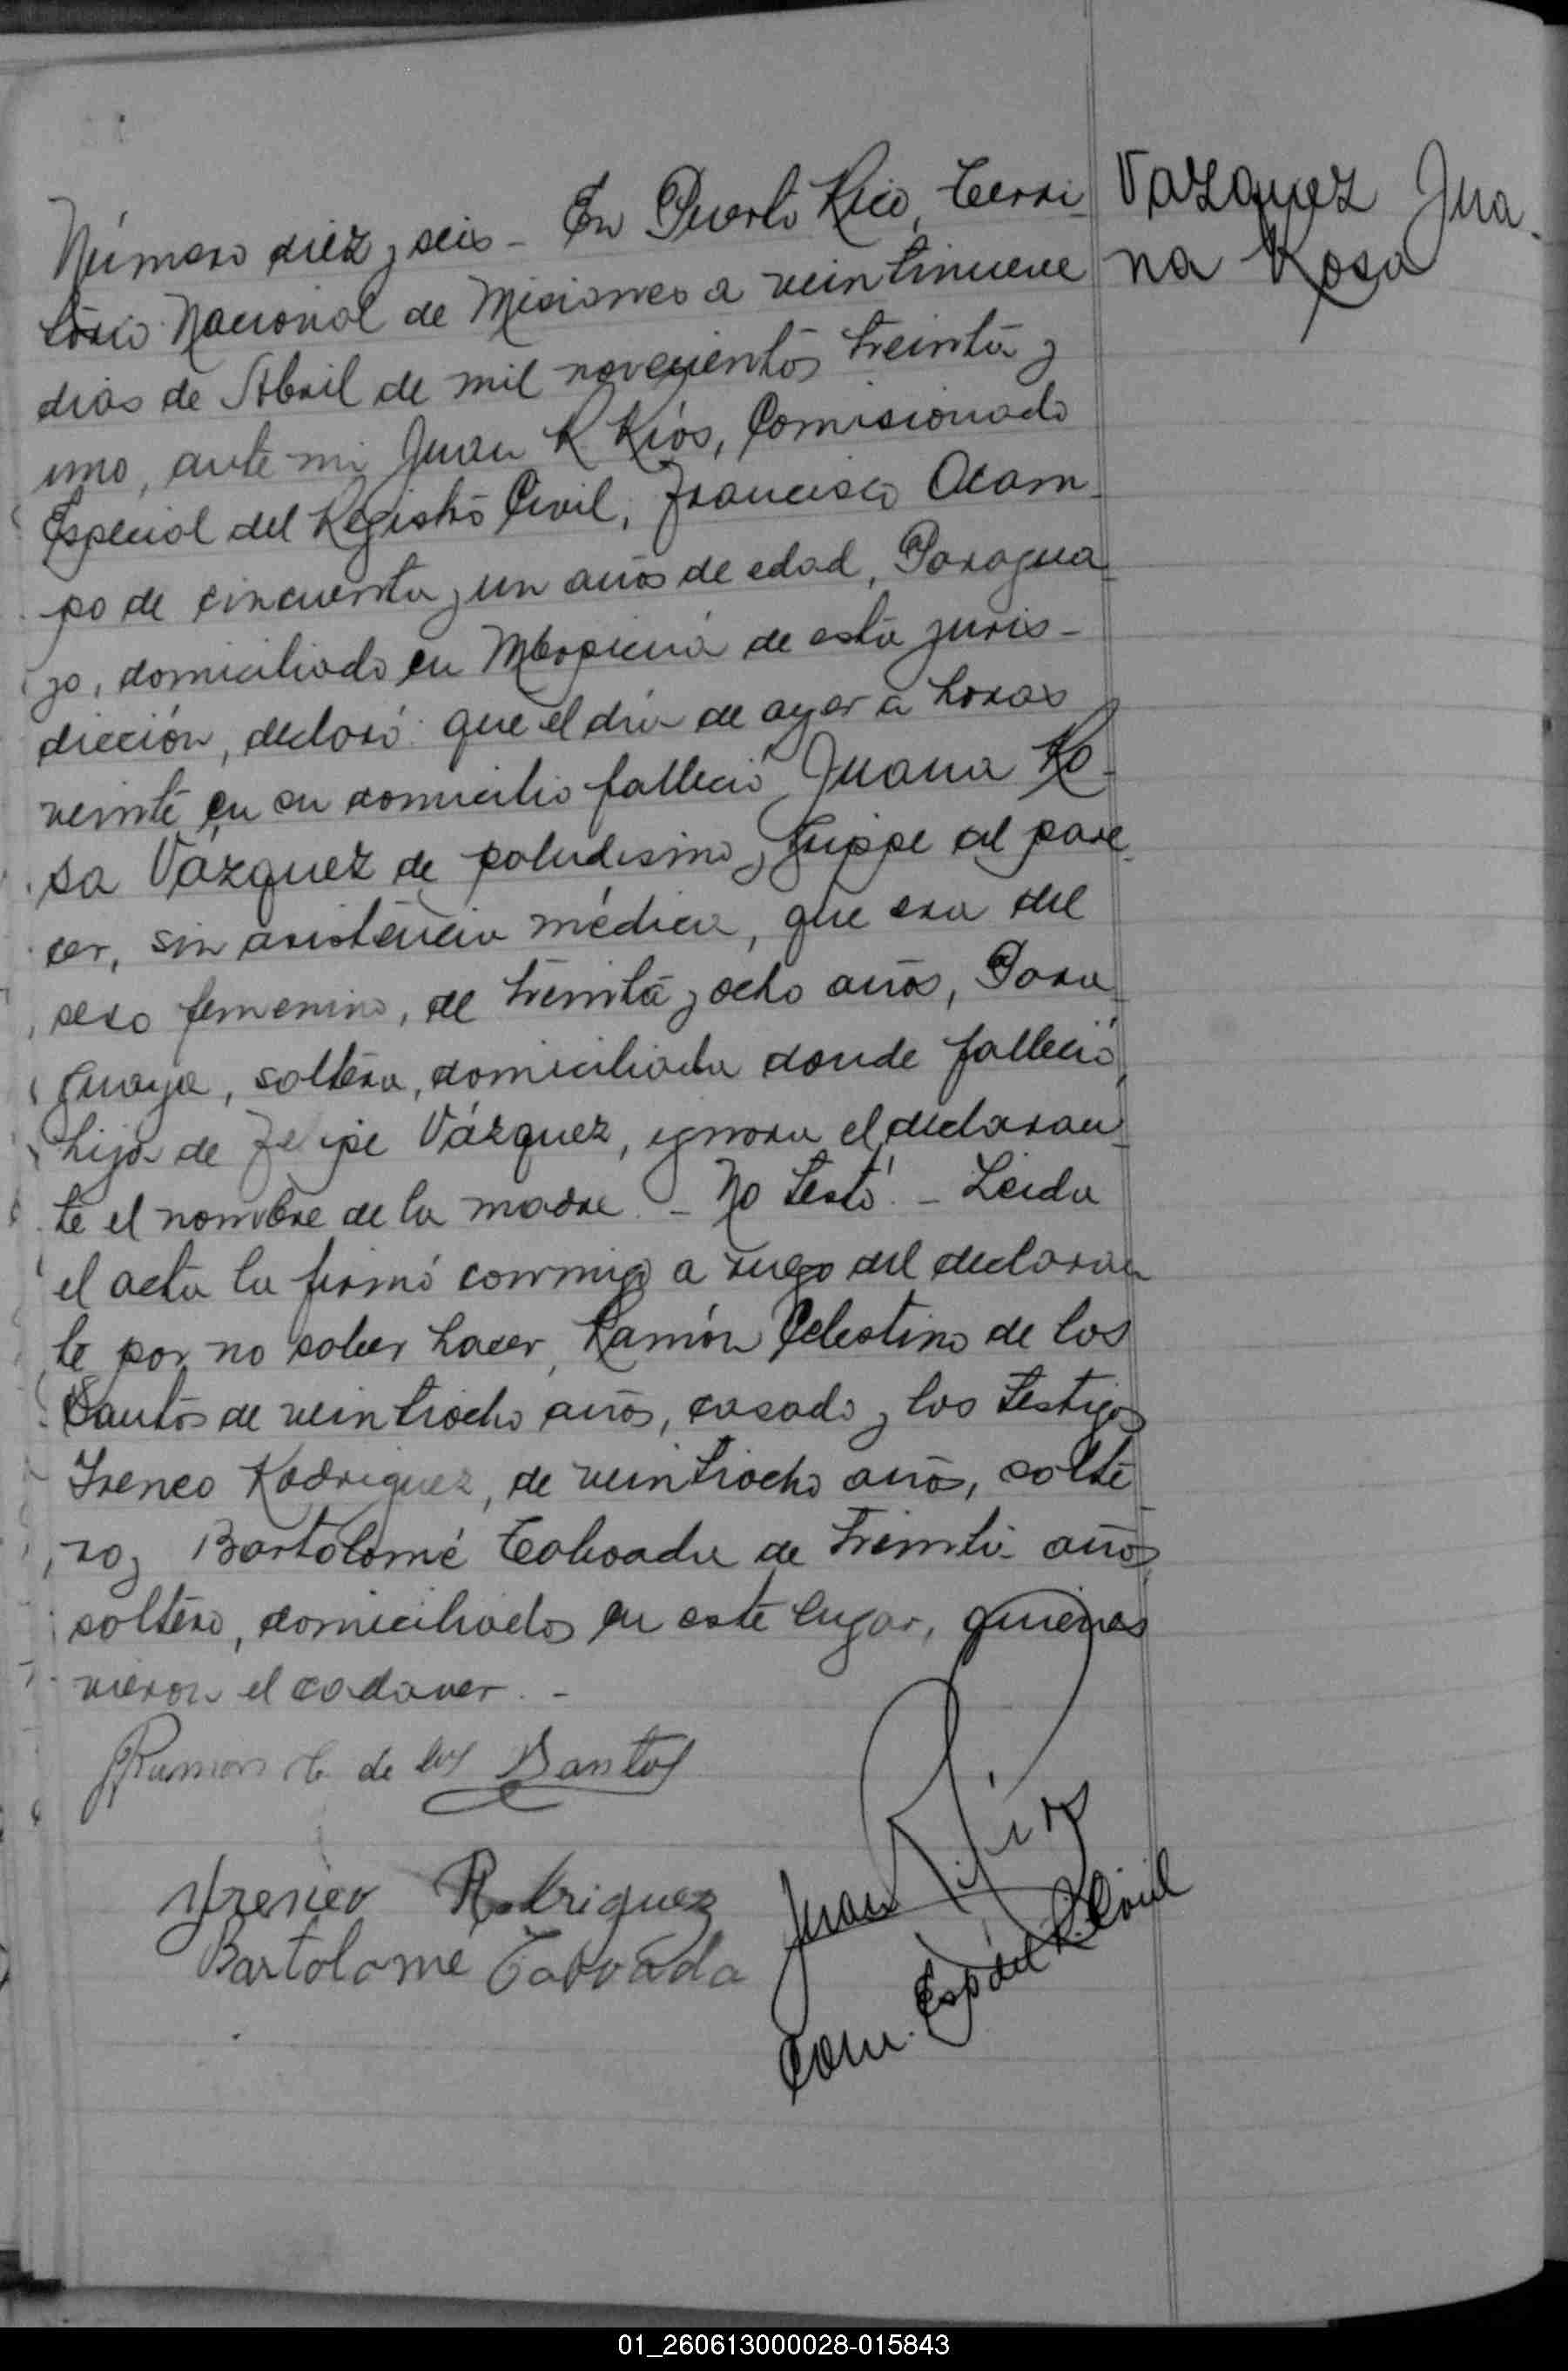 Vazquez Jua-
na Rosa
Número diez y seis - En Puerto Rico, Terri-
torio Nacional de Misiones a veintinueve
dias de Abril de mil novecientos treinta y
uno, ante mi Juan R Ríos, Comisionado
Especial del Registro Civil, Francisco Ocam-
po de cincuenta y un años de edad, Paragua-
yo, domiciliado en Mbopicuá de esta juris-
dicción, declaró: que el dia de ayer a horas
veinte en su domicilio falleció Juana Ro-
sa Vázquez de paludismo y grippe al pare-
cer, sin asistencia médica, que era del
sexo femenino, de treinta y ocho años, Para-
guaya, soltera, domiciliada donde falleció,
hija de Felipe Vázquez, ignora el declaran-
te el nombre de la madre. - No testó. - Leida
el acta la firmó conmigo a ruego del declaran
te por no saber hacer, Ramón Celestino de los
Santos de veintiocho años, casado y los testigos
Ireneo Rodriguez, de veintiocho años, solte-
ro y Bartolomé Taboada de treinta años
soltero, domiciliados en este lugar, quienes
vieron el cadaver. -
Ramon C. de los Santos
Juan R. Ríos
Yreneo Rodriguez
Bartolomé Taboada
Com. Esp del R. Civil
01_260613000028-015843